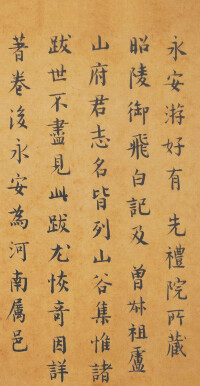 永安游好有　先禮院所藏
昭陵御飛白記及　曾叔祖盧
山府君志名皆列山谷集惟諸
跋世不盡見此跋尤恢奇因詳
著卷後永安為河南屬邑